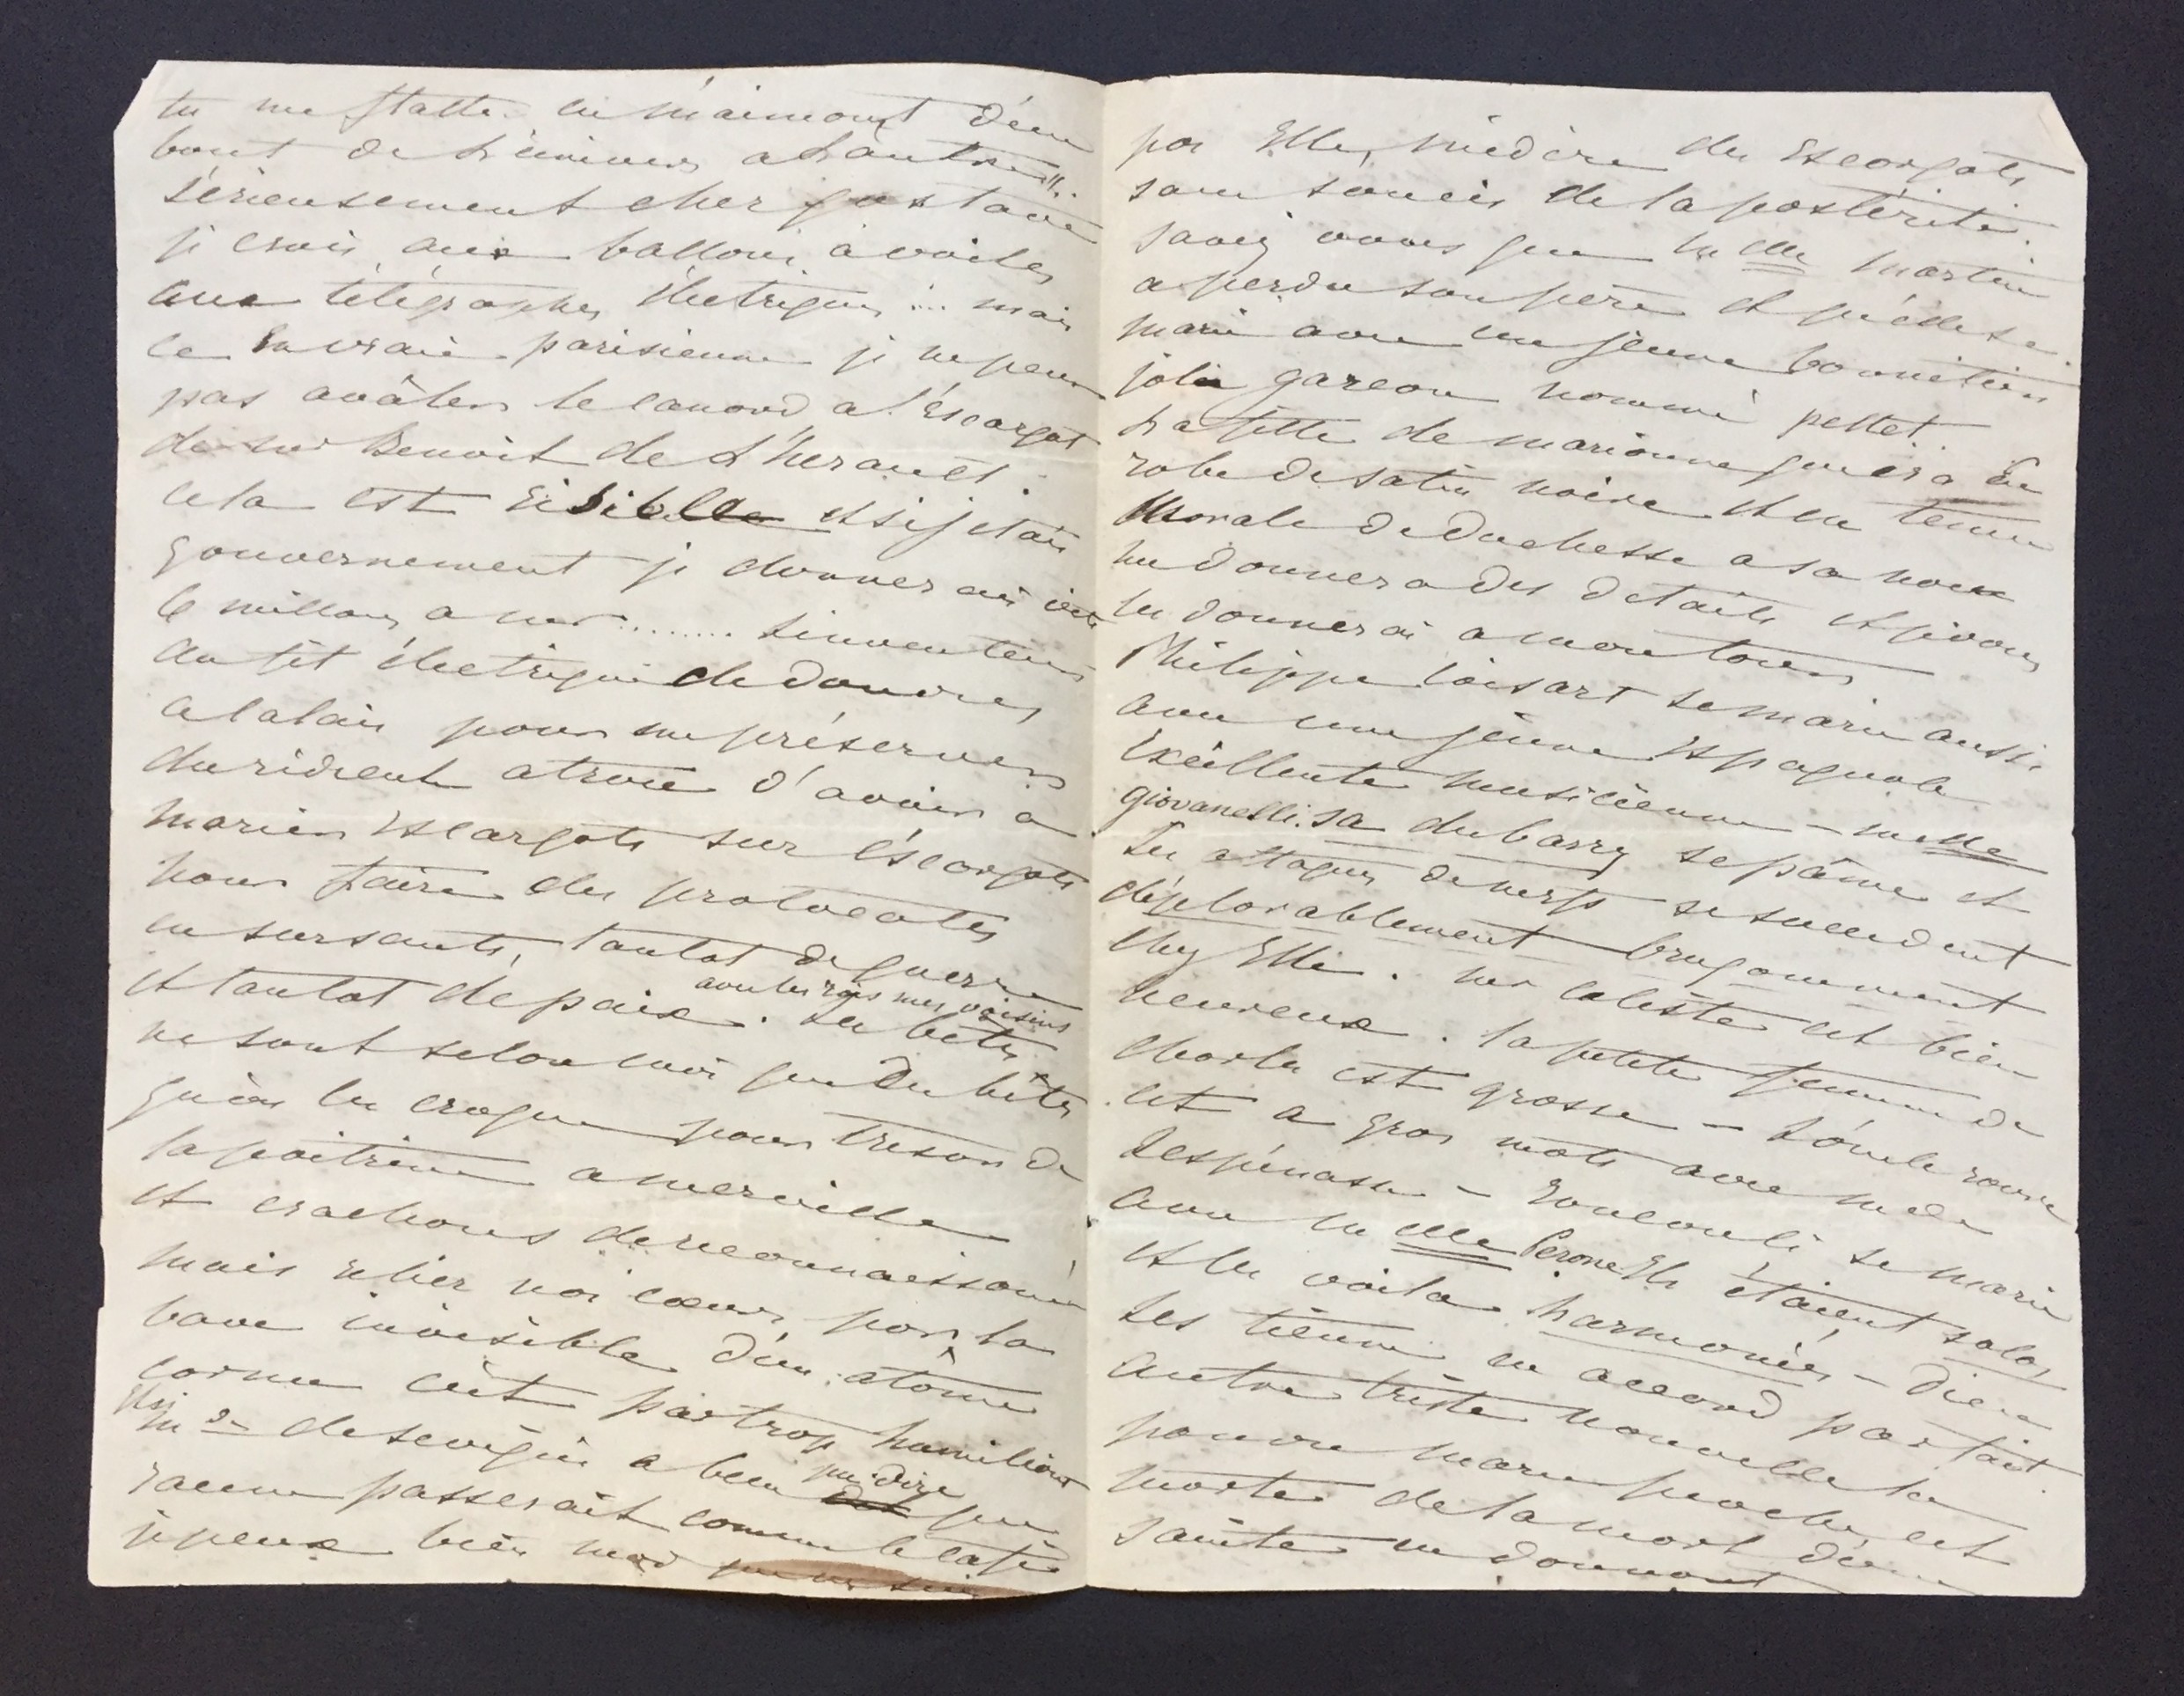 tu me flatte en m'aimant d'un
bout de l'univers a l'autre".
sérieusement cher gustave
je crois aux ballons à voiles
aux télégraphes électriques ... mais
en vraie parisienne je ne peux
pas avâler le canard a l'Escargot
de mr Benoit de L'herault.
cela est risible et si j'etais
gouvernement je donnerai
le millons a mr ........ linventeur
du fit électrique de
pour me préserver
du ridicule atroce d'avoir a
marier Escargots sur Escargots
pour faire des protocoles
en sursauts, tantot de guerre
et tantot de paix. avec les rois mes voisins
les bêtes
ne sont selon moi que des bêtes
qu'on les croque pour
la poitrine a merveille
et crachons de reconnaissance
mais relier nos cœurs par la
bave invisible d'un atôme
cornu c'est par trop humiliant
Si
me de sevigné a bien pu dire que
racine passerait comme le café
je peux bien moi

par Elle, médire des Escargots
sans soucis de la postérité.
savez vous que Melle martin
a perdu son père et qu'elle se
marie avec un jeune bonnetier
joli garcon nommé peltet.
la fille de marianne en
robe de satin noire et en tenue
Morale de duchesse a sa noce
me donnera des details et je vous
les donnerai a mon tour
Philippe loisart se marie aussi
avec une jeune Espagnole
Excellente musicienne - melle
giovanelli. sa dubarry se pâme et
les attaques de nerfs se succedent
déplorablement
chez Elle. mr celeste est bien
heureux. la petite femme de
charles est grosse -
est a gros mots avec made
Lespinasse - se marie
avec melle Peronelle étaient solos
et les voila harmonies - Dieu
les tienne en accord parfait.
autre triste nouvelle la
pauvre marie est
morte de la mort d'une
sainte en donnant